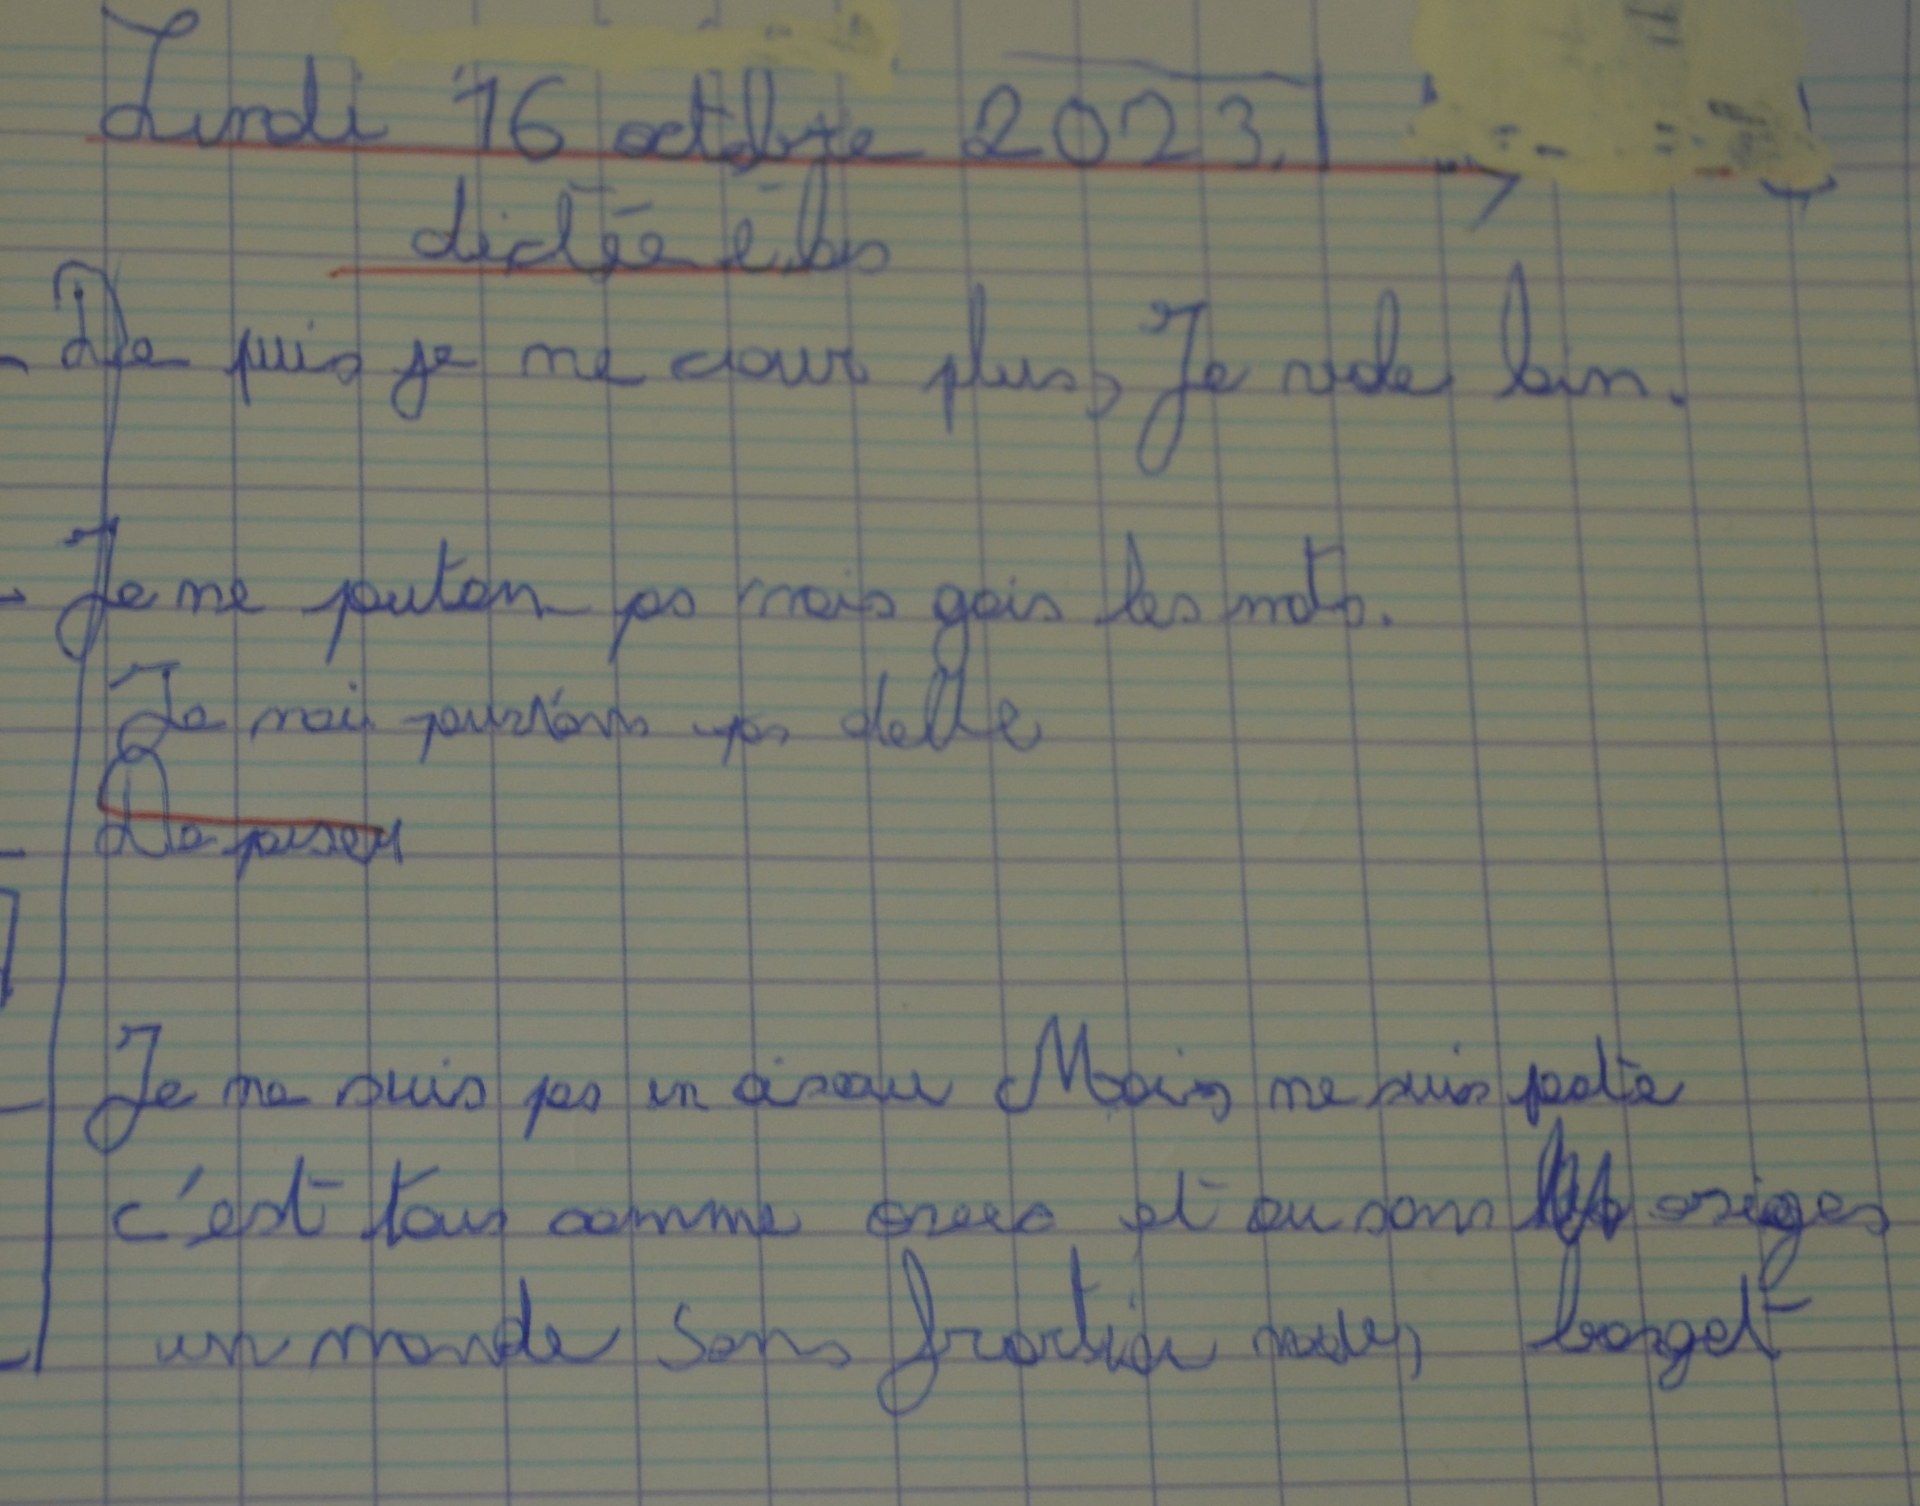 Lundi 16 octobre 2023.
dictée
De puis je me cour plus, Je vole bin.
Je ne pouton pas mais gais les mots.
Je mai pourtons pas delle
De poser
Je ne suis pas un oiseau Mais me suis poste
c'est tous comme et ou sons origes
un monde sons frontier nodes borget